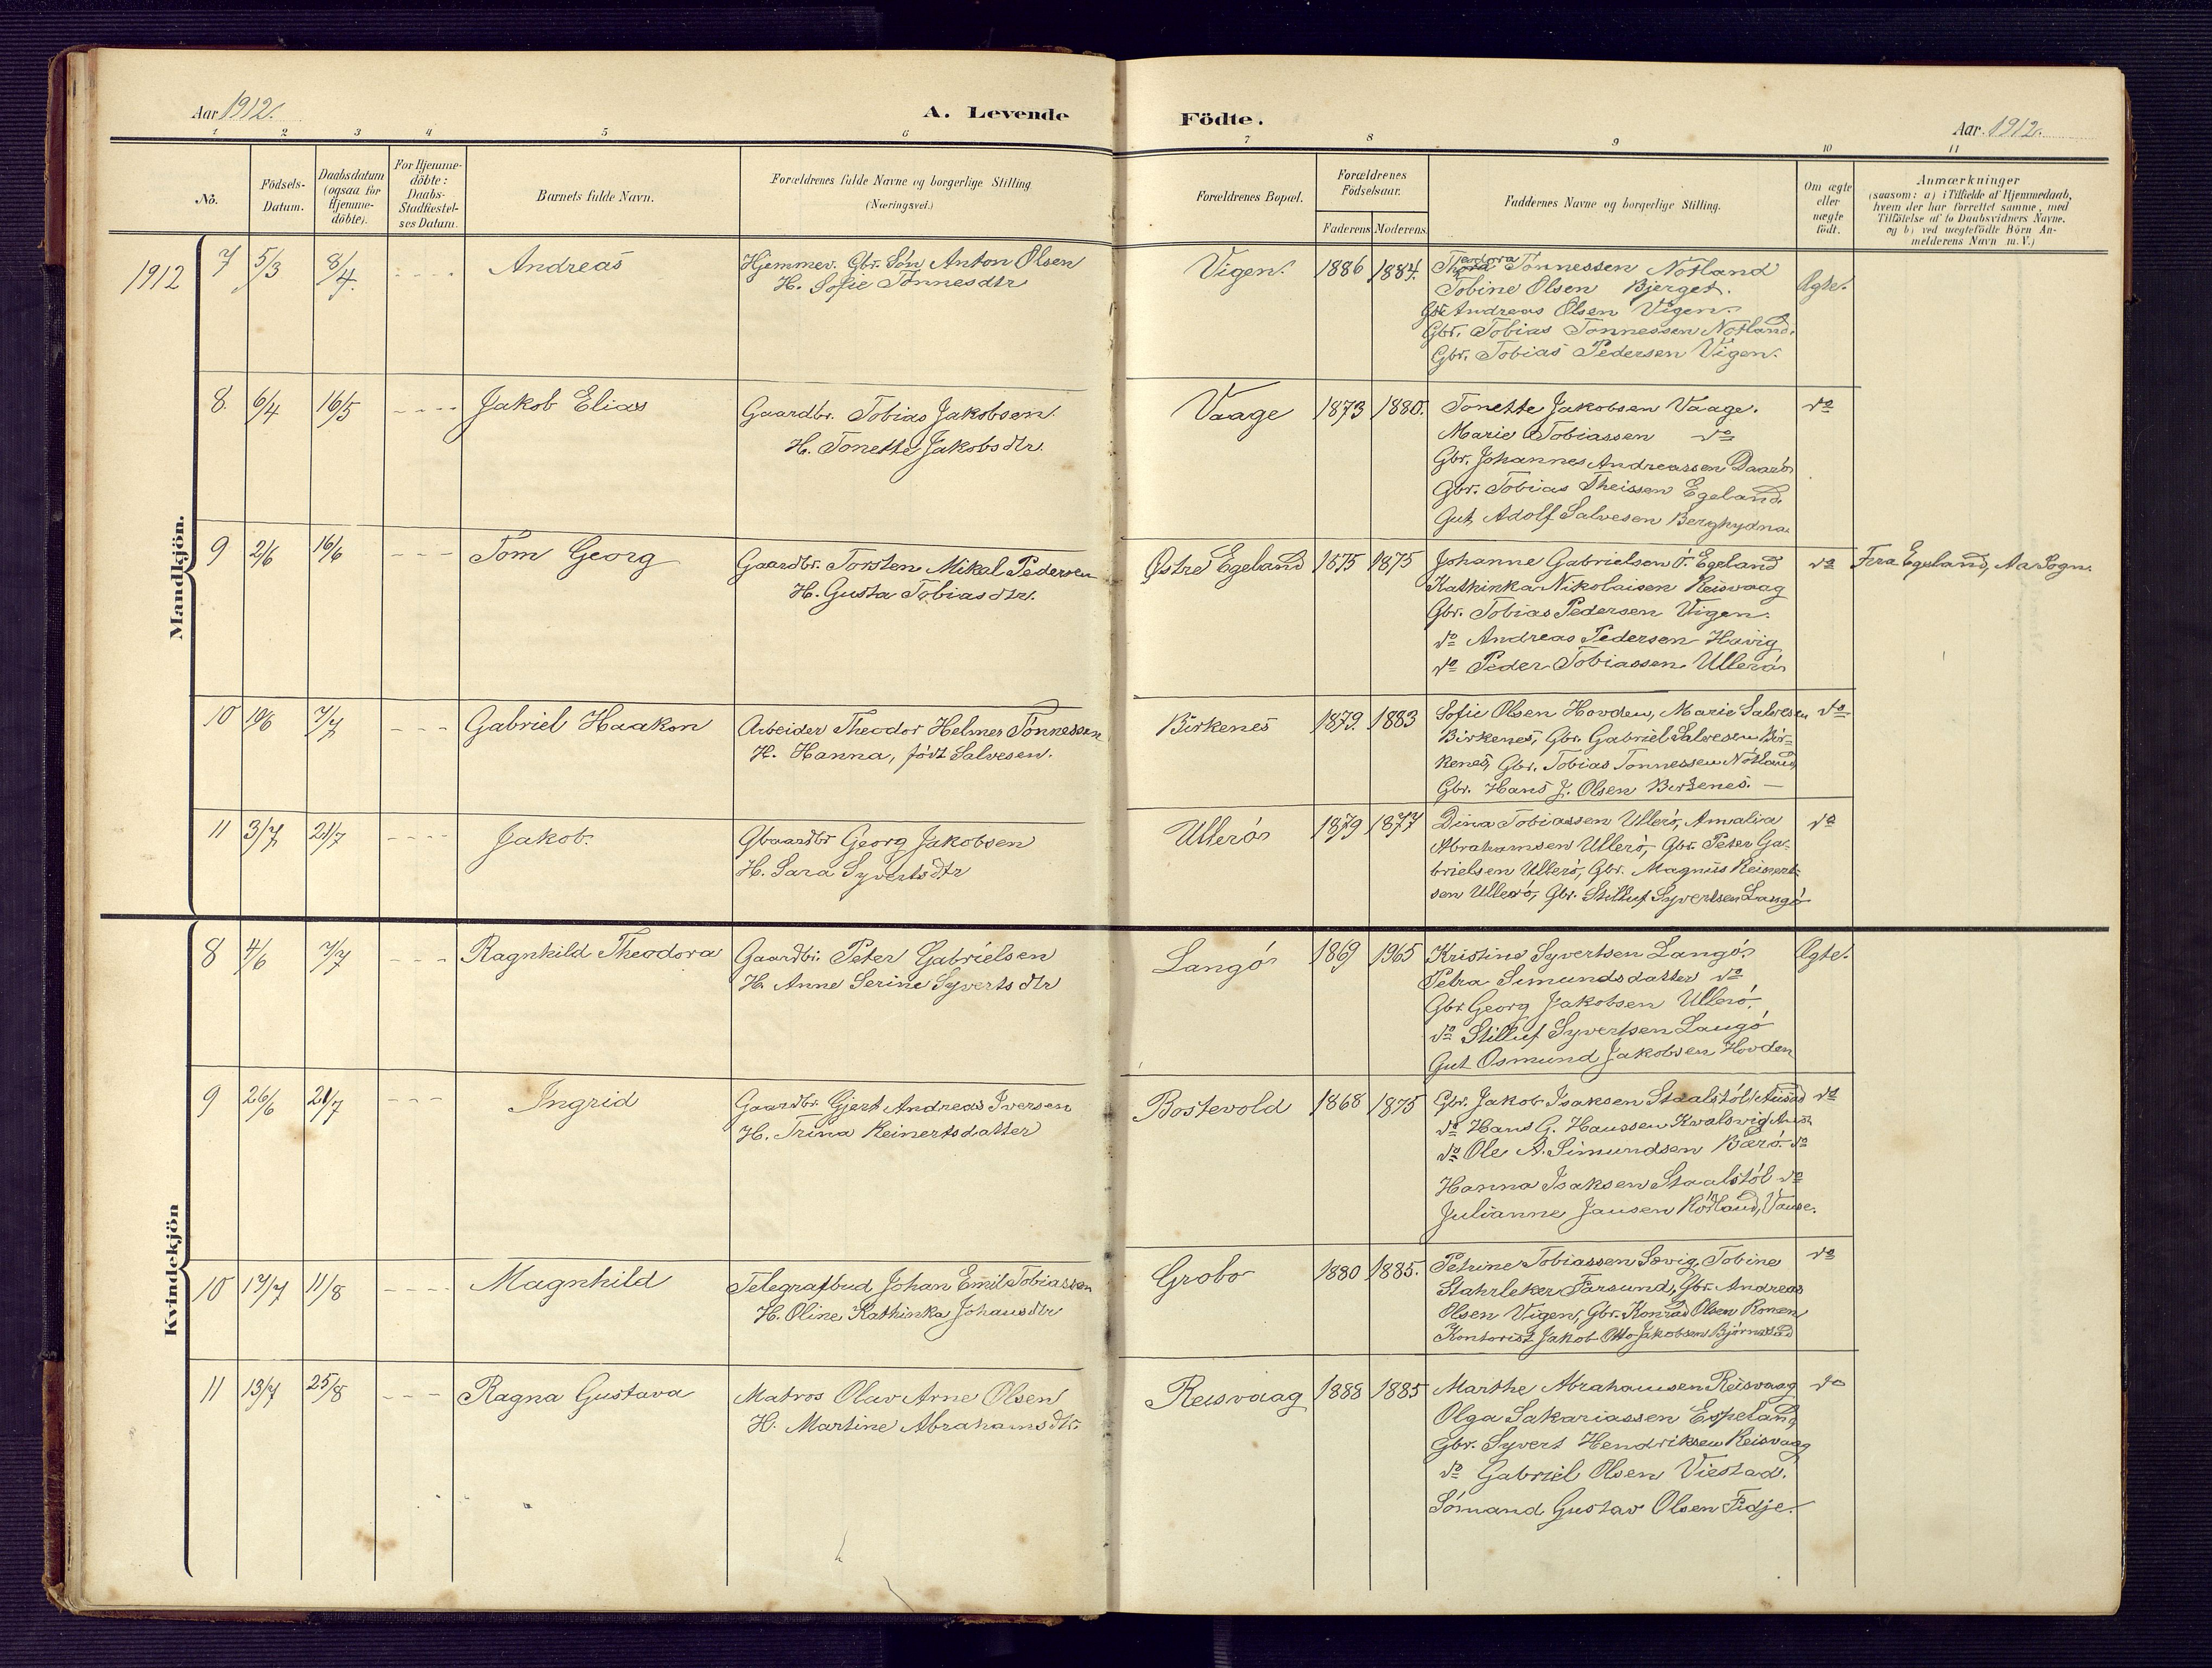 Aar 1912. A. Levende Födte. Aar 1912.
1 2 3 4 5 6 7 8 9 10 11
No. Födsels-Datum. Daabsdatum (ogsaa for Hjemme-döbte). For Hjemme-döbte: Daabs-Stadfæstel-ses Datum. Barnets fulde Navn. Forældrenes fulde Navne og borgerlige Stilling (Næringsvei.) Forældrenes Bopæl. Forældrenes Födselsaar. Faderens Moderens Faddernes Navne og borgerlige Stilling. Om ægte eller uægte födt. Anmærkninger (saasom: a) i Tilfælde af Hjemmedaab, hvem der har forrettet samme, med Tilföielse af to Daabsvidners Navne. og b) ved uægtefödte Börn An-melderens Navn m. V.)
Mandkjön.
1912 7 5/3 8/4. - - - - Andreas
Hjemmev. Gbr. Sön Anton Olsen
H. Sofie Tönnesdtr
Vigen. 1886 1884.
Tönnessen Notland
Tobine Olsen Bjerget.
Gbr Andreas Olsen Vigen.
Gbr. Tobias Tönnessen Notland.
Gbr. Tobias Pedersen Vigen.
Ægte.
8. 6/4 16/5 - - - - Jakob Elias
Gaardbr. Tobias Jakobsen.
H. Tonette Jakobsdtr.
Vaage 1873 1880.
Tonette Jakobsen Vaage.
Marie Tobiassen do
Gbr. Johannes Andreassen Daarö
Gbr. Tobias Theissen Egeland.
Gut Adolf Salvesen
do
9 2/6 16/6 - - - Tom Georg
Gaardbr. Torsten Mikal Pedersen
H. Gusta Tobiasdtr.
Østre Egeland 1875 1875
Johanne Gabrielsen Ö. Egeland
Kathinka Nikolaisen Reisvaag
Gbr. Tobias Pedersen Vigen.
do Andreas Pedersen Havig
do Peder Tobiassen Ullerö
do Fra Egeland, Aa Sogn.
10 19/6 7/7 - - - Gabriel Haakon
Arbeider Theodor Helmer Tönnessen
H. Hanna, födt Salvesen.
Birkenes 1879. 1883
Sofie Olsen Hovden, Marie Salvesen
Birkenes, Gbr. Gabriel Salvesen Bir-
kenes, Gbr. Tobias Tönnessen Nötland,
Gbr. Hans J. Olsen Birkenes. —
do
11 3/7 21/7 - - - - Jakob.
Gbaardbr Georg Jakobsen
H. Sara Syvertsdtr
Ullerö 1879 1877
Dina Tobiassen Ullerö, Amalia
Abrahamsen Ullerö, Gbr. Peter Ga-
brielsen Ullerö, Gbr. Magnus Reinert-
sen Ullerö, Gbr. Stilluf Syvertsen Langö
do
Kvindekjön
8 4/6 7/7 - - - Ragnhild Theodora
Gaardbr. Peter Gabrielsen
H. Anne Serine Syvertsdtr
Langö 1869 1965
Kristine Syvertsen Langö.
Petra Simundsdatter do
Gbr Georg Jakobsen Ullerö.
do Stilluf Syvertsen Langö
Gut Osmund Jakobsen Hovden
Ægte.
9 26/6 21/7 - - - Ingrid
Gaardbr. Gjert Andreas Iversen
H. Trina Reinertsdatter
Bostevold 1868 1875
Gbr. Jakob Isaksen Staalstöl
do Hans G. Hanssen Kvalsvig
do Ole A. Simundsen Bærö. do
Hanna Isaksen Staalstöl do
Julianne Jansen Rödland, Vanse.
do
10 17/7 11/8 - - - - Magnhild
Telegrafbud Johan Emil Tobiassen
H. Oline Kathinka Johansdtr
Grobo 1880 1885.
Petrine Tobiassen Sævig, Tobine
Farsund, Gbr. Andreas
Olsen Vigen, Gbr. Konrad Olsen
Kontorist Jakob Otto Jakobsen Björnestad
do
11 13/7 25/8 - - - Ragna Gustava
Matros Olav Arne Olsen
H. Martine Abrahamsdtr.
Reisvaag 1888 1885
Marthe Abrahamsen Reisvaag
Olga Sakariassen Espeland,
Gbr. Syvert Hendriksen Reisvaag
do Gabriel Olsen Viestad.
Sömand Gustav Olsen Fidje.
do